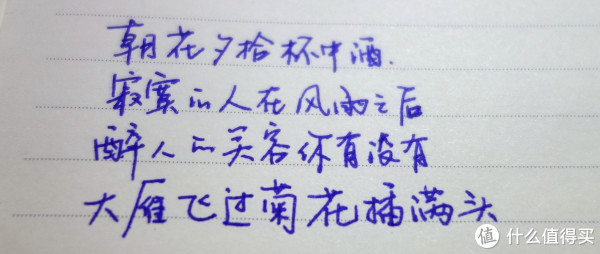 朝花夕拾杯中酒.
寂寞的人在风雨之后
醉人的笑容你有没有
大雁飞过菊花插满头
值 什么值得买